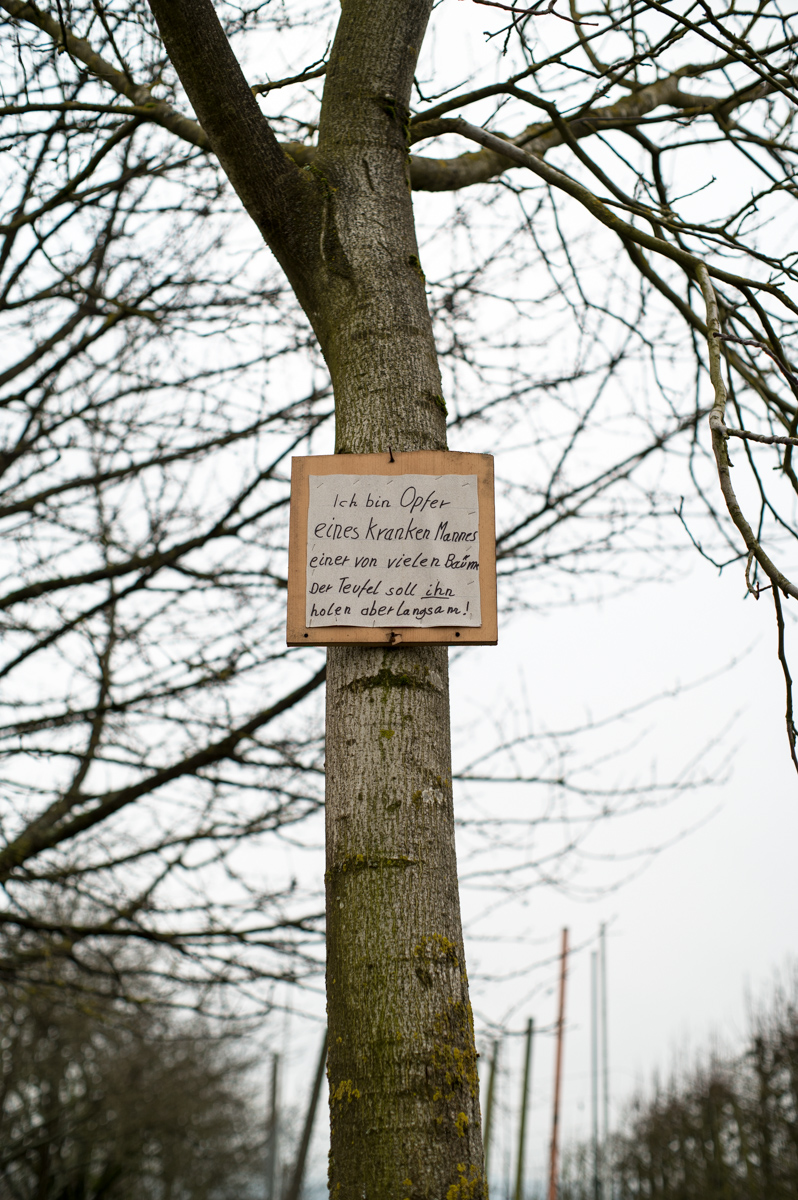 Ich bin Opfer
eines kranken Mannes
einer von vielen Bäum
Der Teufel soll ihn
holen aber langsam!